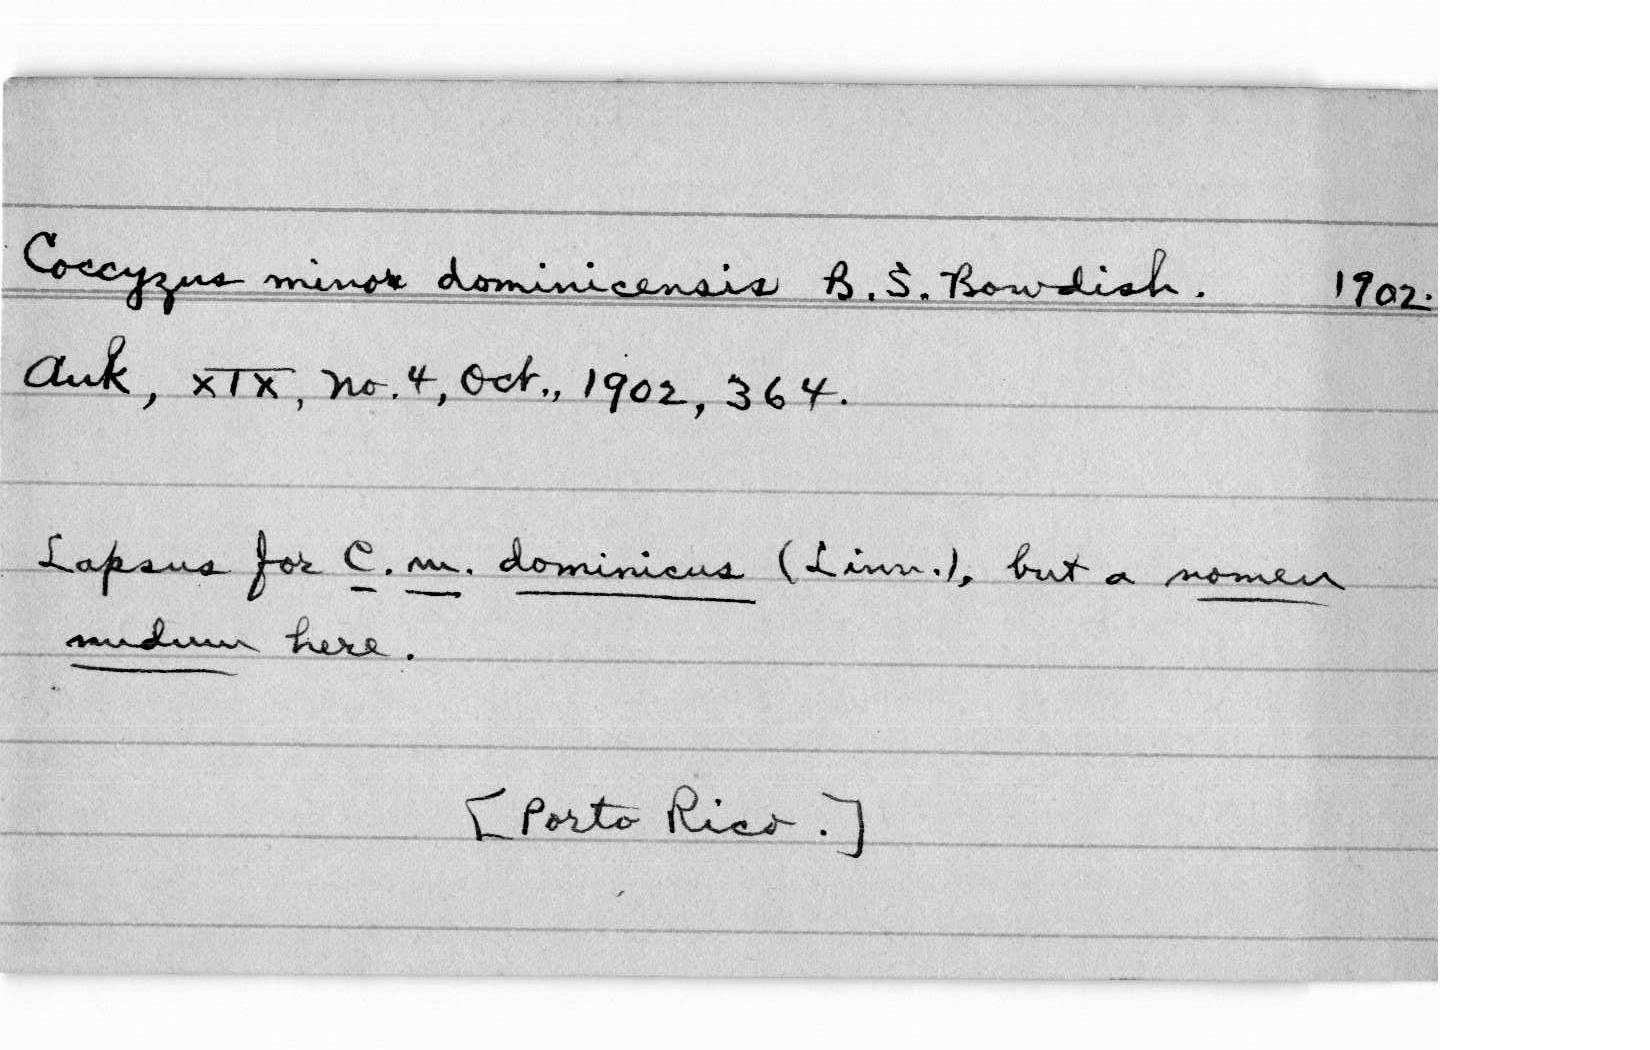 Coccyzus minor dominicensis B. S. Bowdish. 1902.
Auk, XIX, no. 4, Oct., 1902, 364.
Lapsus for C. m. dominicus (Linn.), but a nomen
nudum here.
[Porto Rico.]